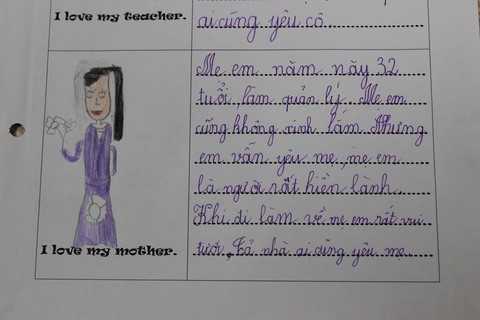 I love my teacher.
ai cũng yêu cô
Mẹ em năm nay 32
tuổi, làm quản lý. Mẹ em
cũng không xinh lắm Nhưng
em vẫn yêu mẹ, mẹ em
là người rất hiền lành.
Khi đi làm về mẹ em rất vui
tươi. Cả nhà ai cũng yêu mẹ
I love my mother.